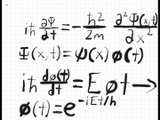 iħ ∂Ψ/∂t = - ħ²/2m ∂²Ψ(x,t)/∂x²
Ψ(x,t) = ψ(x) ϕ(t)
iħ dϕ(t)/dt = E ϕt →
ϕ(t) = e^-iEt/ħ